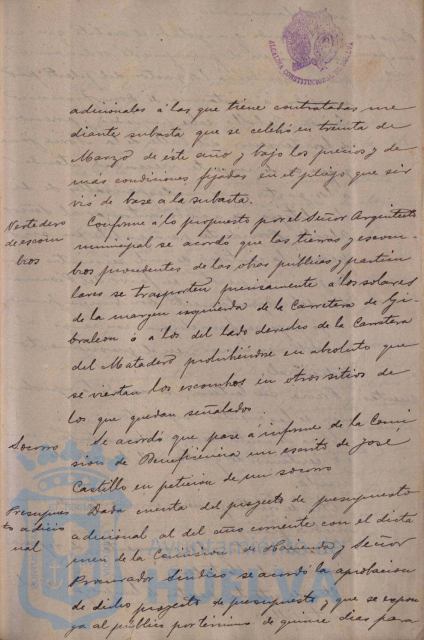 ALCALDIA CONSTITUCIONAL DE HUELVA
adicionales á las que tiene contratadas me
diante subasta que se celebró en treinta de
Marzo de este año y bajo los precios y de
más condiciones fijadas en el pliego que sir
vió de base a la subasta.
Vertedero
de escom
bros
Conforme á lo propuesto por el Señor Arquitecto
municipal se acordó que las tierras y escom
bros procedentes de las obras públicas y particu
lares se trasporten precisamente á los solares
de la margen izquierda de la Carretera de Gi
braleon ó á los del lado derecho de la Carretera
del Matadero prohibiéndose en absoluto que
se viertan los escombros en otros sitios de
los que quedan señalados.
Socorro
Se acordó que pase á informe de la Comi
sión de Beneficencia un escrito de José
Castillo en petición de un socorro
Presupues
to adicio
nal
Dada cuenta del proyecto de presupuesto
adicional al del año corriente con el dicta
men de la Comisión de Hacienda y Señor
Procurador Síndico se acordó la aprobacion
de dicho proyecto de presupuesto y que se expon
ga al público por término de quince dias para
HUELVA